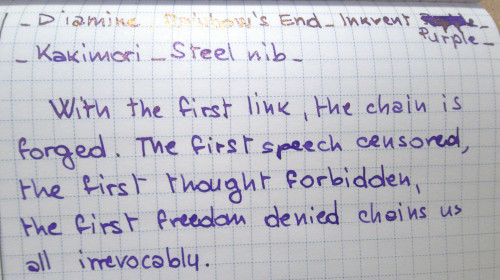 - Diamine Rainbow's End - Inkvent
Purple -
- Kakimori - Steel nib -
With the first link, the chain is
forged. The first speech censored,
the first thought forbidden,
the first freedom denied chains us
all irrevocably.